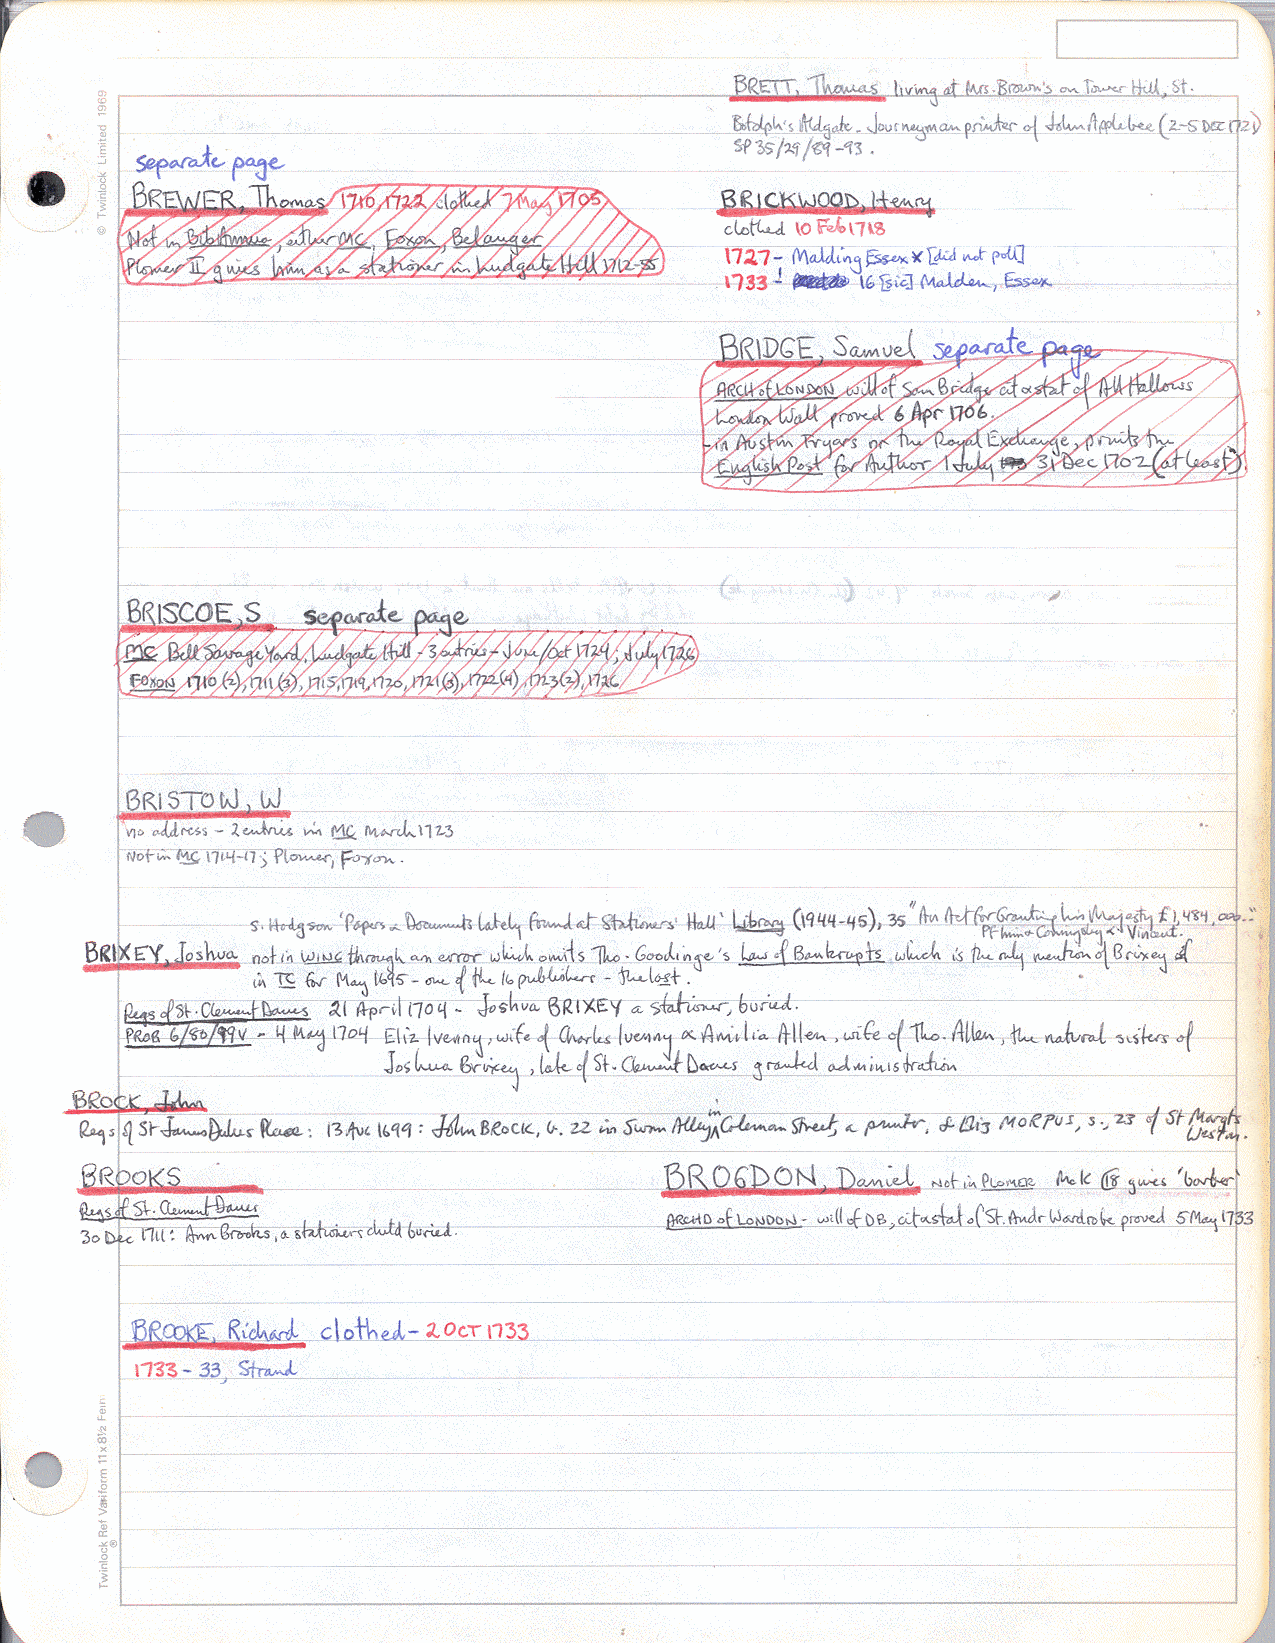 BRETT, Thomas living at Mrs. Brown's on Tower Hill, St.
Botolph's Aldgate - Journeyman printer of John Applebee (2-5 DEC 1721)
SP 35/29/89-93.
separate page
BREWER, Thomas 1710, 1722 clothed 7 May 1705
Not in Bib Annuae, either MC, Foxon, Belanger
Plomer II gives him as a stationer in Ludgate Hill 1712-
BRICKWOOD, Henry
clothed 10 Feb 1718
1727 - Malding Essex x [did not poll]
1733 - 16 [sic] Malden, Essex
BRIDGE, Samuel separate page
ARCH of LONDON will of Sam Bridge cit & stat of All Hallows
London Wall proved 6 Apr 1706.
- in Austin Fryars nr the Royal Exchange, prints the
English Post for Author 1 July 31 Dec 1702 (at least).
BRISCOE, S separate page
MC Bell Savage Yard, Ludgate Hill - 3 entries - June/Oct 1724; July 1726
FOXON 1710 (2), 1711 (3), 1715, 1719, 1720, 1721 (3), 1722 (4), 1723 (2), 1726
BRISTOW, W
no address - 2 entries in MC March 1723
Not in MC 1714-17; Plomer, Foxon.
S. Hodgson 'Papers & Documents lately found at Stationers' Hall' Library (1944-45), 35 "An Act for Granting his Majesty £1,484,000.."
Pf him & Coningsby & Vincent.
BRIXEY, Joshua not in WING through an error which omits Tho. Goodinge's Law of Bankrupts which is the only mention of Brixey
in TC for May 1695 - one of the 16 publishers - the last.
Regs of St. Clement Danes 21 April 1704 - Joshua BRIXEY a stationer, buried.
PROB 6/80/99V - 4 May 1704 Eliz Ivenny, wife of Charles Ivenny & Amilia Allen, wife of Tho. Allen, the natural sisters of
Joshua Brixey, late of St. Clement Danes granted administration
BROCK, John
Regs of St James Dukes Place: 13 AUG 1699: John BROCK, b. 22 in Swan Alley in Coleman Street, a printer, & Eliz MORPUS, s., 23 of St Margts
Westm.
BROOKS
Regs of St. Clement Danes
30 Dec 1711: Ann Brooks, a stationers child buried.
BROGDON, Daniel not in PLOMER McK 18 gives 'barber'
ARCHD of LONDON - will of DB, cit & stat of St. Andr Wardrobe proved 5 May 1733
BROOKE, Richard clothed - 2 OCT 1733
1733 - 33, Strand
© Twinlock Limited 1969
Twinlock Ref Variform 11 x 8½ Fein
®